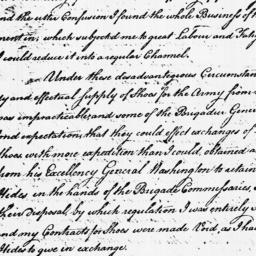 nd the utter Confusion I found the whole Business of the
ment in; which subjected me to great Labour and Fatig
I could reduce it into a regular Channel.
Under these disadvantageous Circumstan
ty and effectual supply of Shoes for the Army from
was impracticable; and some of the Brigadier Gener
ond expectation, that they could effect exchanges of
Shoes with more expedition than I could, obtained a
from his Excellency General Washington to retain
Hides in the hands of the Brigade Commissaries,
their Disposal, by which regulation I was entirely
and my Contracts for Shoes were made Void, as I ha
Hides to give in exchange.